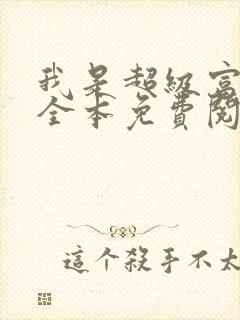 我是超级富
全本免費閱
這个殺手不太